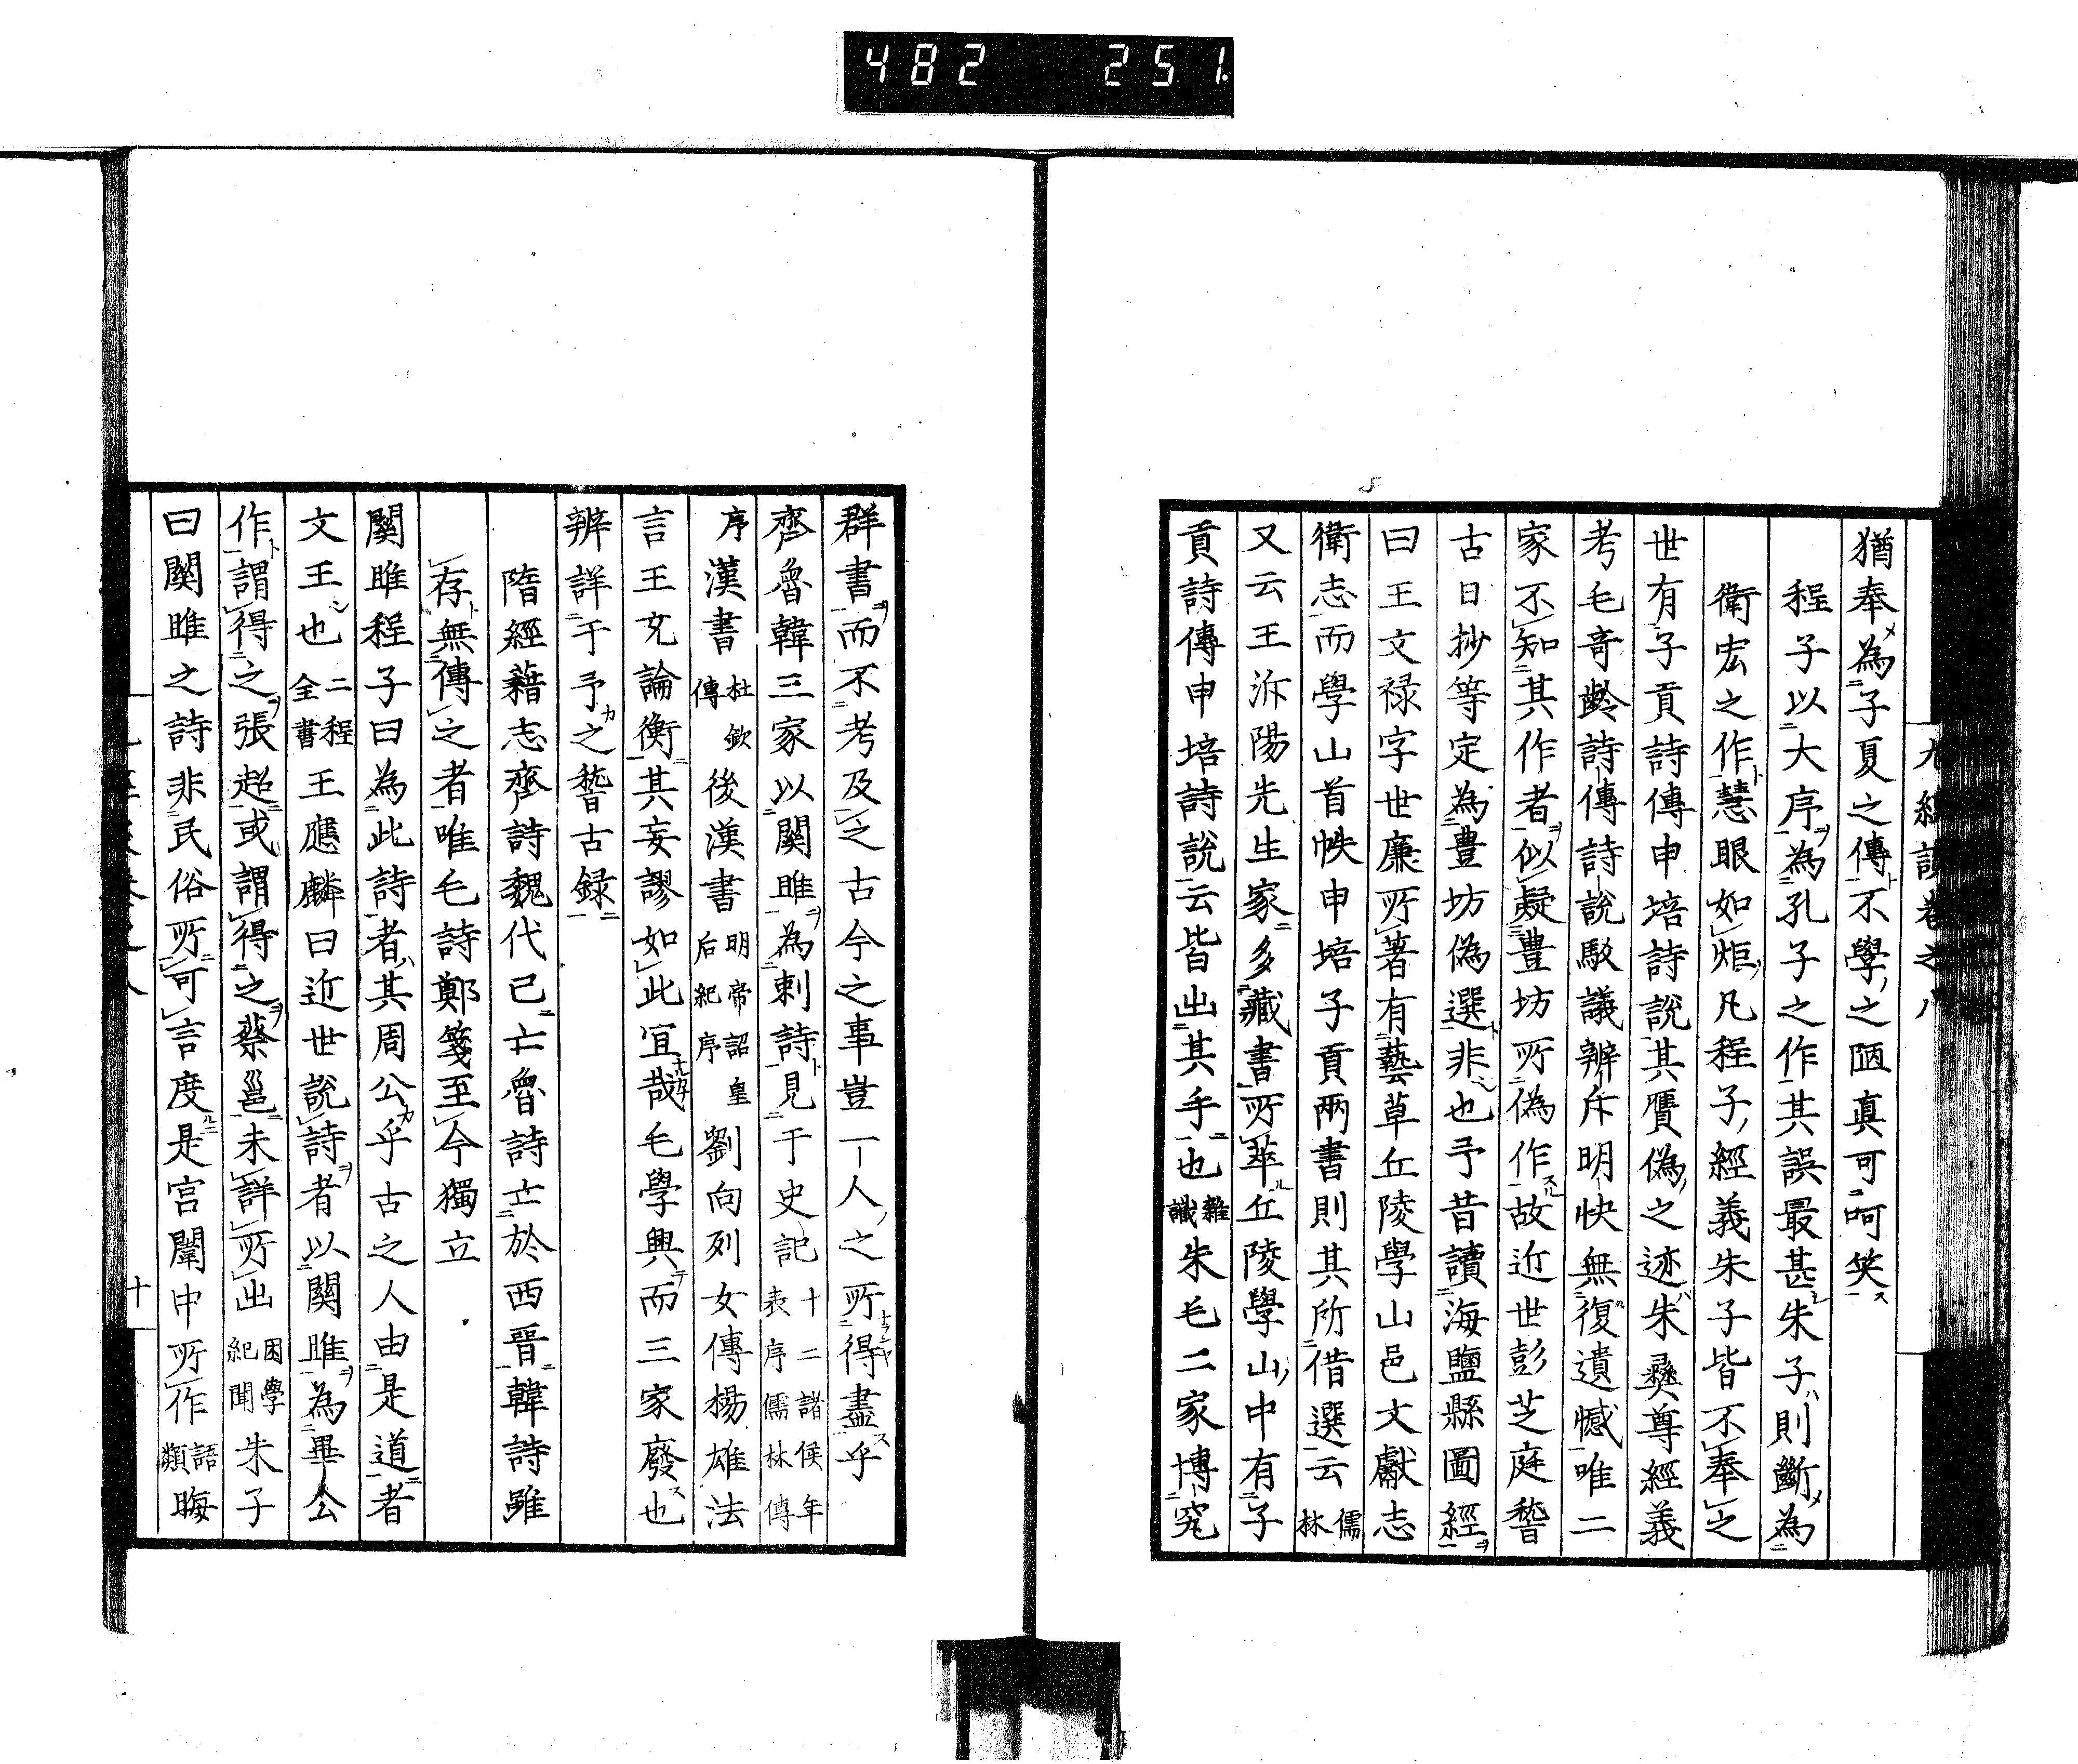 482 251
九經談卷之八
猶奉為子夏之傳不學之陋真可呵笑
程子以大序為孔子之作其誤最甚朱子則斷為
衛宏之作慧眼如炬凡程子經義朱子皆不奉之
世有子貢詩傳申培詩說其贋偽之迹朱彝尊經義
考毛奇齡詩傳詩說駁議辨斥明快無復遺憾唯二
家不知其作者似疑豊坊所偽作故近世彭芝庭稽
古日抄等定為豊坊偽選非也予昔讀海鹽縣圖經
曰王文禄字世廉所著有藝草丘陵學山邑文獻志
衛志而學山首帙申培子貢兩書則其所借選云儒林
又云王沂陽先生家多藏書所萃丘陵學山中有子
貢詩傳申培詩說云皆出其手也雜識朱毛二家博究
群書而不考及之古今之事豈一人之所得盡乎
齊魯韓三家以關雎為刺詩見于史記十二諸侯年表序儒林傳
序漢書杜欽傳後漢書明帝詔皇后紀序劉向列女傳楊雄法
言王充論衡其妄謬如此宜哉毛學興而三家廢也
辨詳于予之稽古録
隋經籍志齊詩魏代已亡魯詩亡於西晋韓詩雖
存無傳之者唯毛詩鄭箋至今獨立
關雎程子曰為此詩者其周公乎古之人由是道者
文王也二程全書王應麟曰近世說詩者以關雎為畢公
作謂得之張超或謂得之蔡邕未詳所出困學紀聞朱子
曰關雎之詩非民俗所可言度是宮闈中所作語類晦
十